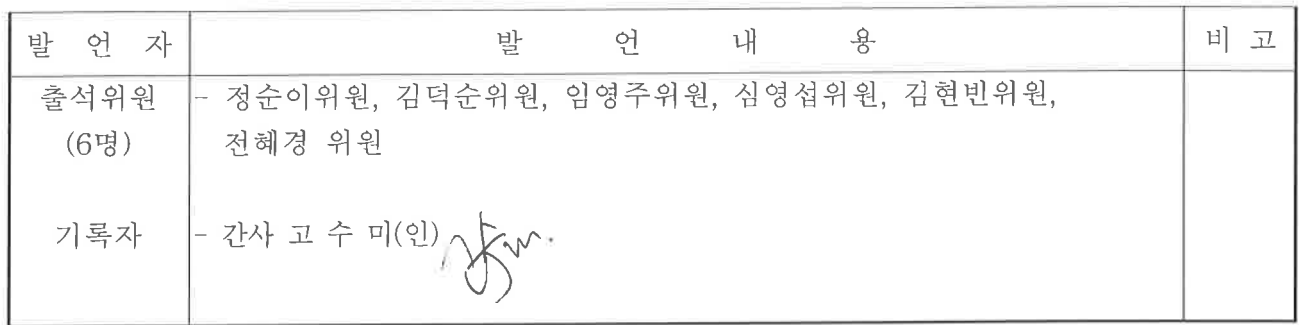 발 언 자 발 언 내 용 비 고
출석위원 - 정순이위원, 김덕순위원, 임영주위원, 심영섭위원, 김현빈위원,
(6명) 전혜경 위원
기록자 - 간사 고 수 미(인)